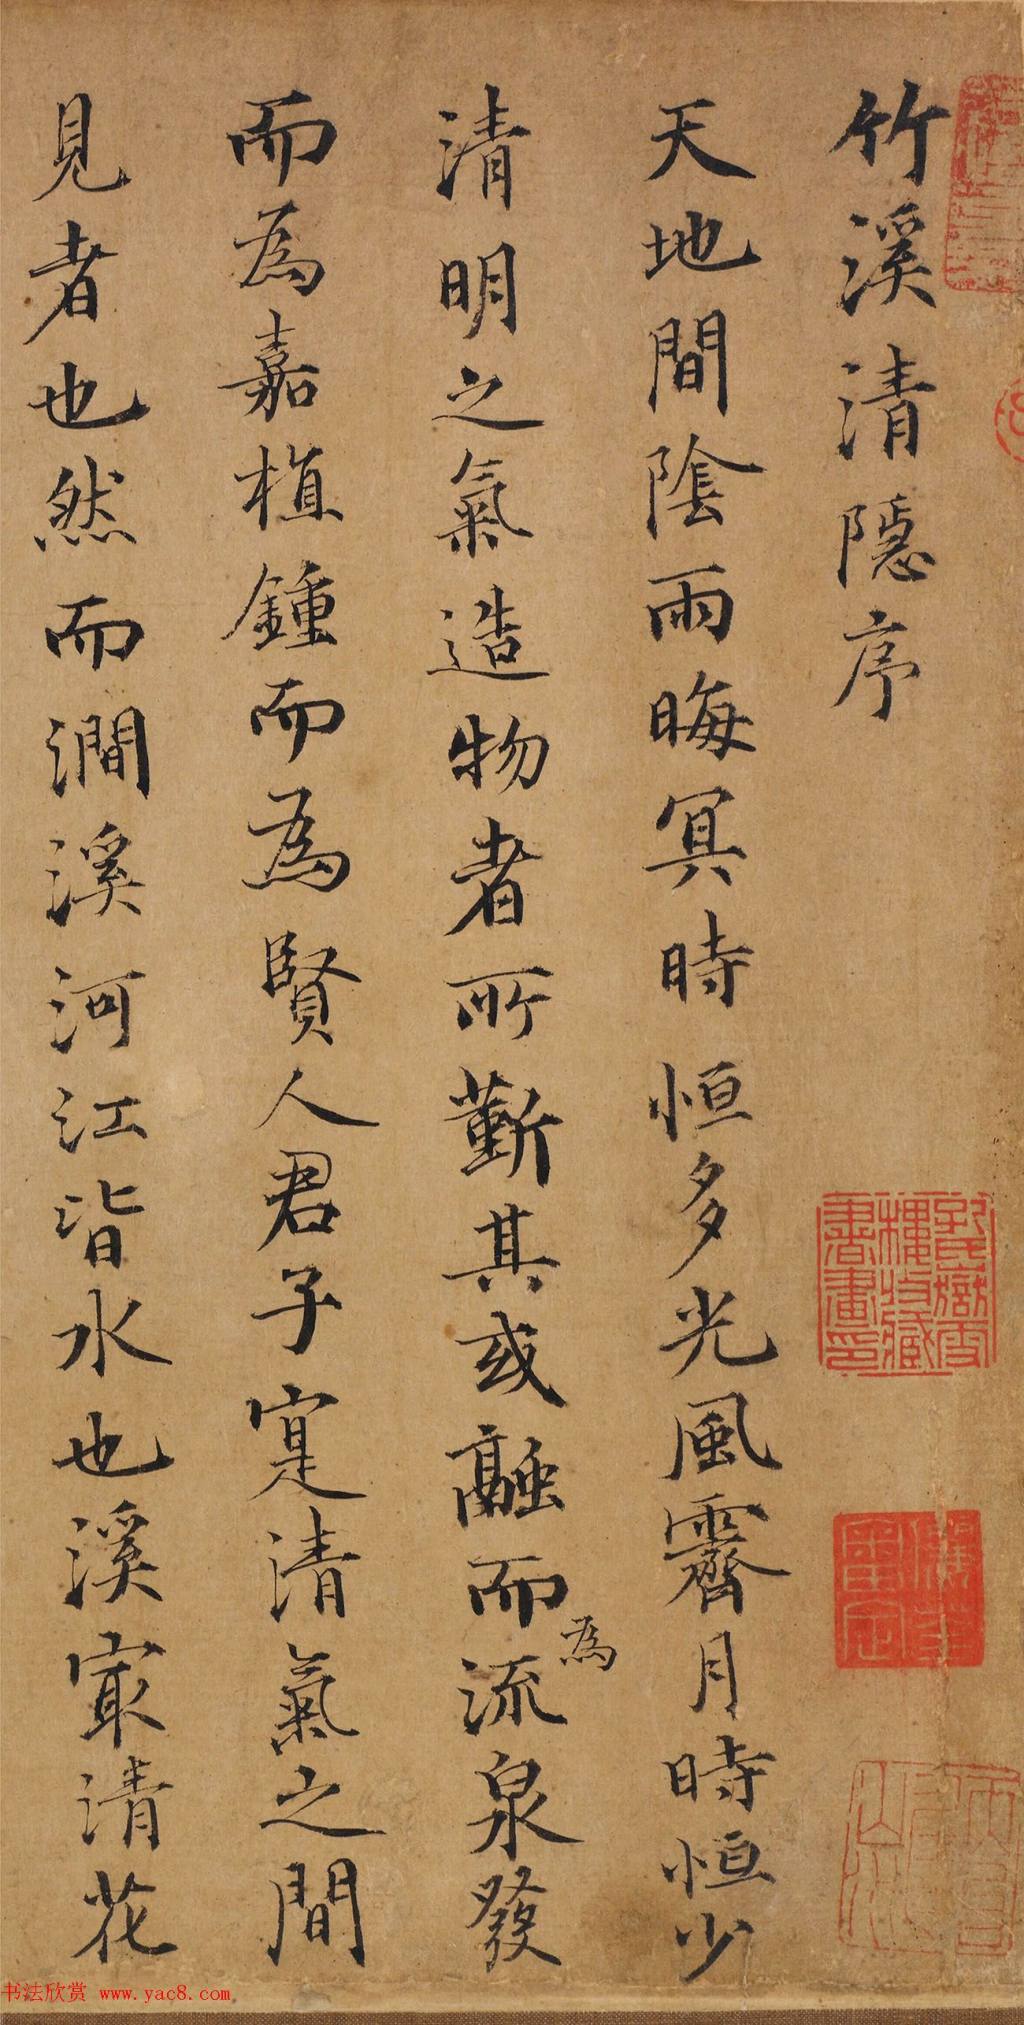 竹溪清隱序
天地間陰雨晦冥時恒多光風霽月時恒少
清明之氣造物者所蘄其或融而為流泉發
而為嘉植鍾而為賢人君子寔清氣之間
見者也然而澗溪河江皆水也溪寂清花
孔氏嶽雪樓收藏書畫印
儀周鑒定
书法欣赏 www.yac8.com